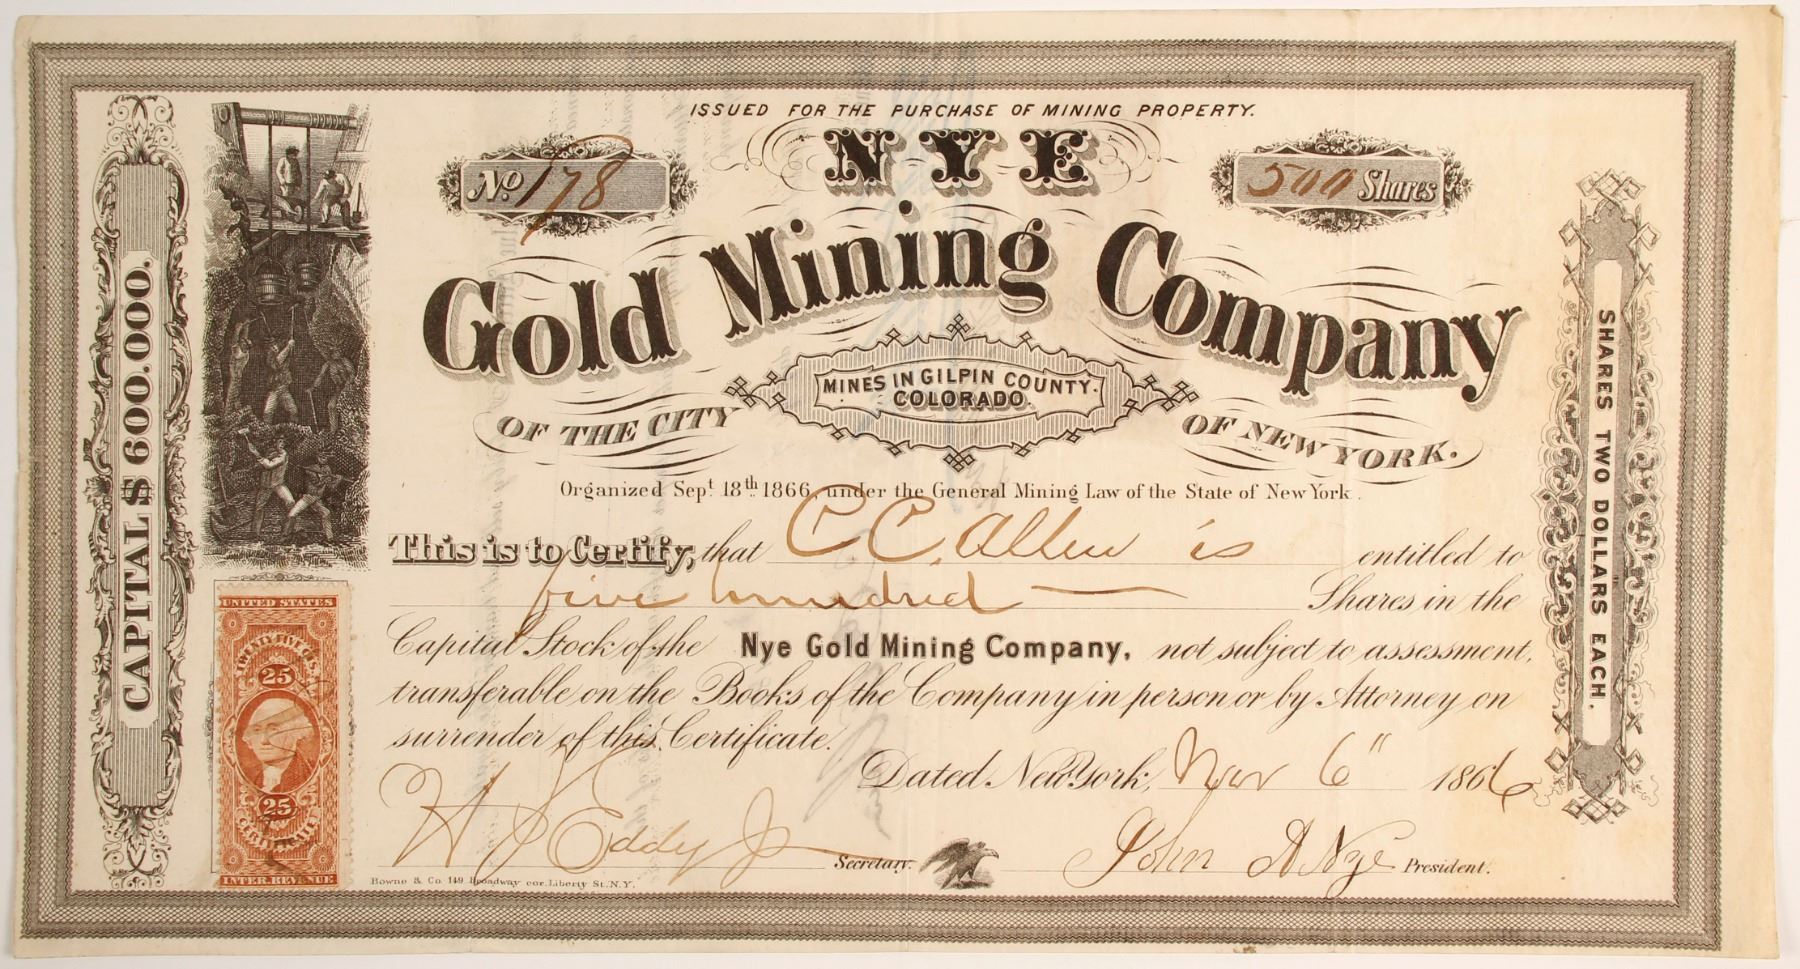 ISSUED FOR THE PURCHASE OF MINING PROPERTY.
No. 178
NYE
500 Shares
Gold Mining Company
MINES IN GILPIN COUNTY.
COLORADO.
OF THE CITY OF NEW YORK.
Organized Sept. 18th 1866, under the General Mining Law of the State of New York.
This is to Certify, that C C Allen is entitled to
five hundred Shares in the
Capital Stock of the Nye Gold Mining Company, not subject to assessment,
transferable on the Books of the Company in person or by Attorney on
surrender of this Certificate.
Dated New York, Nov 6" 1866
Eddy Jr Secretary.
John A Nye President.
Bowne & Co. 149 Broadway cor. Liberty St. N.Y.
CAPITAL $ 600.000.
SHARES TWO DOLLARS EACH.
UNITED STATES
TWENTY FIVE CTS.
25
25
CERTIFICATE
INTER. REVENUE